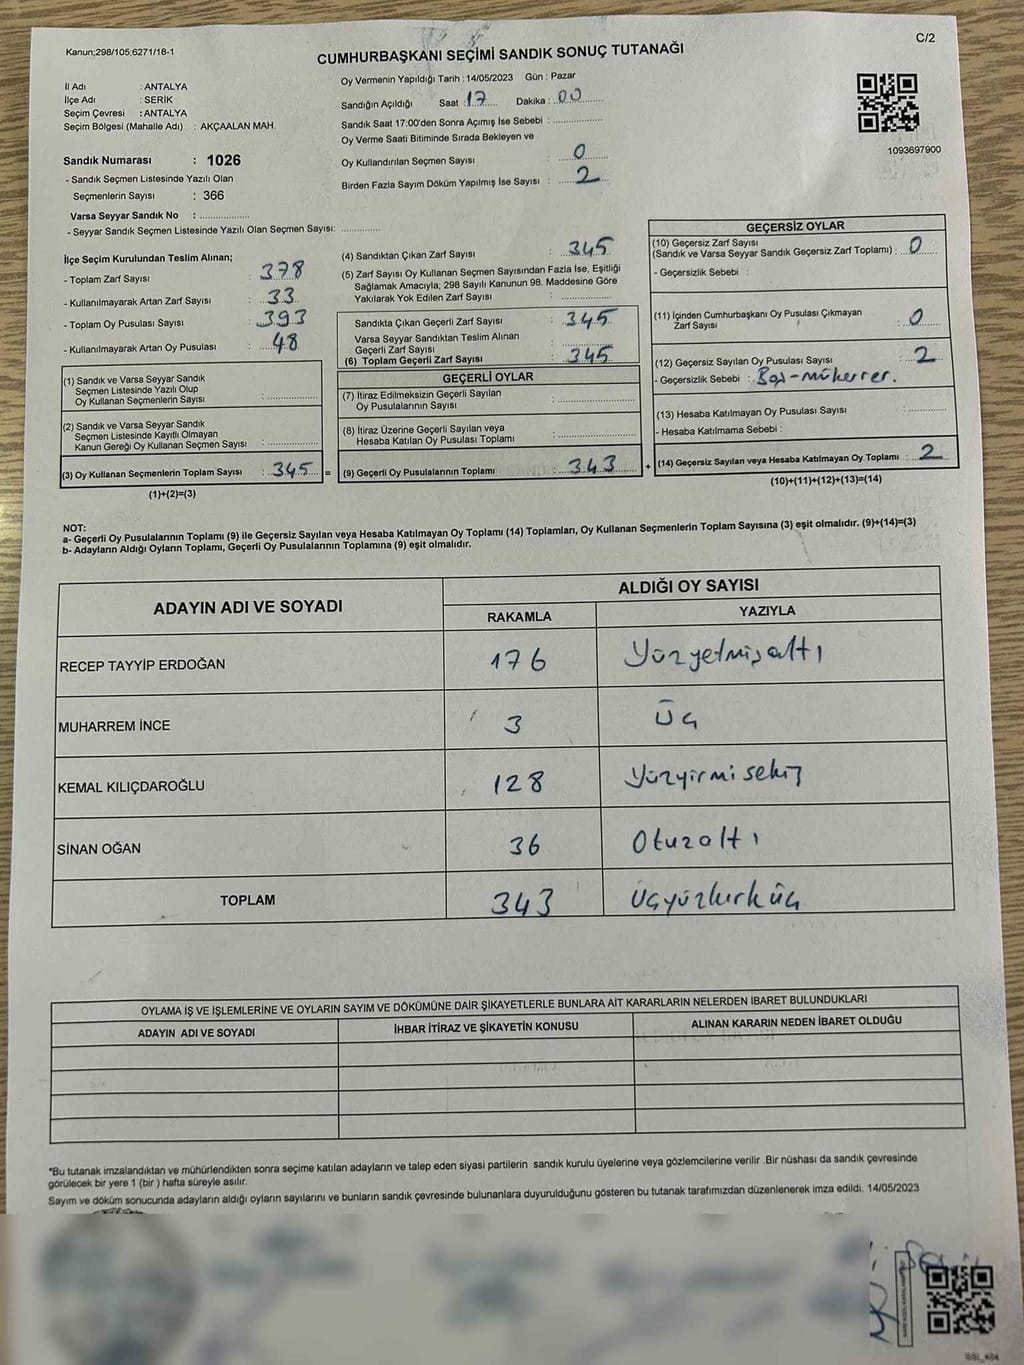 Kanun;298/105;6271/18-1
C/2
CUMHURBAŞKANI SEÇİMİ SANDIK SONUÇ TUTANAĞI
İl Adı : ANTALYA
İlçe Adı : SERİK
Seçim Çevresi : ANTALYA
Seçim Bölgesi (Mahalle Adı) : AKÇAALAN MAH.
Oy Vermenin Yapıldığı Tarih : 14/05/2023 Gün : Pazar
Sandığın Açıldığı Saat : 17 Dakika : 00
Sandık Saat 17:00'den Sonra Açımış İse Sebebi :
Oy Verme Saati Bitiminde Sırada Bekleyen ve
Oy Kullandırılan Seçmen Sayısı : 0
Birden Fazla Sayım Döküm Yapılmış İse Sayısı : 2
1093697900
Sandık Numarası : 1026
- Sandık Seçmen Listesinde Yazılı Olan
Seçmenlerin Sayısı : 366
Varsa Seyyar Sandık No :
- Seyyar Sandık Seçmen Listesinde Yazılı Olan Seçmen Sayısı:
İlçe Seçim Kurulundan Teslim Alınan;
- Toplam Zarf Sayısı : 378
- Kullanılmayarak Artan Zarf Sayısı : 33
- Toplam Oy Pusulası Sayısı : 393
- Kullanılmayarak Artan Oy Pusulası : 48
(1) Sandık ve Varsa Seyyar Sandık
Seçmen Listesinde Yazılı Olup
Oy Kullanan Seçmenlerin Sayısı :
(2) Sandık ve Varsa Seyyar Sandık
Seçmen Listesinde Kayıtlı Olmayan
Kanun Gereği Oy Kullanan Seçmen Sayısı :
(3) Oy Kullanan Seçmenlerin Toplam Sayısı : 345 =
(1)+(2)=(3)
(4) Sandıktan Çıkan Zarf Sayısı : 345
(5) Zarf Sayısı Oy Kullanan Seçmen Sayısından Fazla İse, Eşitliği
Sağlamak Amacıyla; 298 Sayılı Kanunun 98. Maddesine Göre
Yakılarak Yok Edilen Zarf Sayısı :
Sandıkta Çıkan Geçerli Zarf Sayısı : 345
Varsa Seyyar Sandıktan Teslim Alınan
Geçerli Zarf Sayısı :
(6) Toplam Geçerli Zarf Sayısı : 345
GEÇERLİ OYLAR
(7) İtiraz Edilmeksizin Geçerli Sayılan
Oy Pusulalarının Sayısı :
(8) İtiraz Üzerine Geçerli Sayılan veya
Hesaba Katılan Oy Pusulası Toplamı :
(9) Geçerli Oy Pusulalarının Toplamı : 343 +
GEÇERSİZ OYLAR
(10) Geçersiz Zarf Sayısı
(Sandık ve Varsa Seyyar Sandık Geçersiz Zarf Toplamı) : 0
- Geçersizlik Sebebi :
(11) İçinden Cumhurbaşkanı Oy Pusulası Çıkmayan
Zarf Sayısı : 0
(12) Geçersiz Sayılan Oy Pusulası Sayısı : 2
- Geçersizlik Sebebi : Boş-mükerrer.
(13) Hesaba Katılmayan Oy Pusulası Sayısı :
- Hesaba Katılmama Sebebi :
(14) Geçersiz Sayılan veya Hesaba Katılmayan Oy Toplamı : 2
(10)+(11)+(12)+(13)=(14)
NOT:
a- Geçerli Oy Pusulalarının Toplamı (9) ile Geçersiz Sayılan veya Hesaba Katılmayan Oy Toplamı (14) Toplamları, Oy Kullanan Seçmenlerin Toplam Sayısına (3) eşit olmalıdır. (9)+(14)=(3)
b- Adayların Aldığı Oyların Toplamı, Geçerli Oy Pusulalarının Toplamına (9) eşit olmalıdır.
ADAYIN ADI VE SOYADI
ALDIĞI OY SAYISI
RAKAMLA YAZIYLA
RECEP TAYYİP ERDOĞAN 176 Yüzyetmişaltı
MUHARREM İNCE 3 Üç
KEMAL KILIÇDAROĞLU 128 Yüzyirmi sekiz
SİNAN OĞAN 36 Otuzaltı
TOPLAM 343 Üçyüzkırküç
OYLAMA İŞ VE İŞLEMLERİNE VE OYLARIN SAYIM VE DÖKÜMÜNE DAİR ŞİKAYETLERLE BUNLARA AİT KARARLARIN NELERDEN İBARET BULUNDUKLARI
ADAYIN ADI VE SOYADI İHBAR İTİRAZ VE ŞİKAYETİN KONUSU ALINAN KARARIN NEDEN İBARET OLDUĞU
*Bu tutanak imzalandıktan ve mühürlendikten sonra seçime katılan adayların ve talep eden siyasi partilerin sandık kurulu üyelerine veya gözlemcilerine verilir .Bir nüshası da sandık çevresinde
görülecek bir yere 1 (bir ) hafta süreyle asılır.
Sayım ve döküm sonucunda adayların aldığı oyların sayılarını ve bunların sandık çevresinde bulunanlara duyurulduğunu gösteren bu tutanak tarafımızdan düzenlenerek imza edildi. 14/05/2023